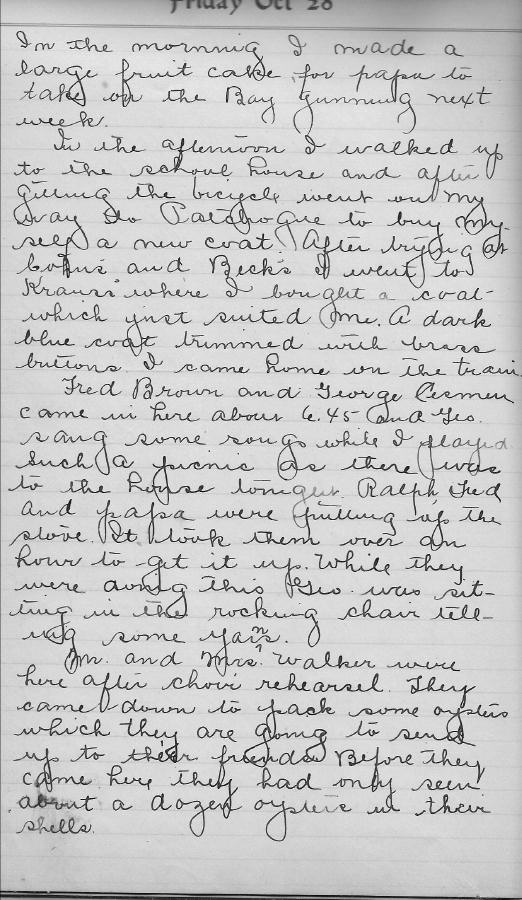 Friday Oct 28
In the morning I made a
large fruit cake for papa to
take on the Bay gunning next
week.
In the afternoon I walked up
to the school house and after
getting the bicycle went on my
way to Patchogue to buy my-
self a new coat. After trying at
and Beck's I went to
Krauss' where I bought a coat
which just suited me. A dark
blue coat trimmed with brass
buttons. I came home on the train
Fred Brown and George
came in here about 6.45 and Geo.
sang some songs while I played
Such a picnic as there was
to the house tonight. Ralph, Fred
and papa were putting up the
stove. It took them over an
hour to get it up. While they
were doing this Geo. was sit-
ting in the rocking chair tell-
ing some yarns.
Mr. and Mrs. Walker were
here after choir rehearsel. They
came down to pack some oysters
which they are going to send
up to their friends Before they
came here they had only seen
about a dozen oysters in their
shells.